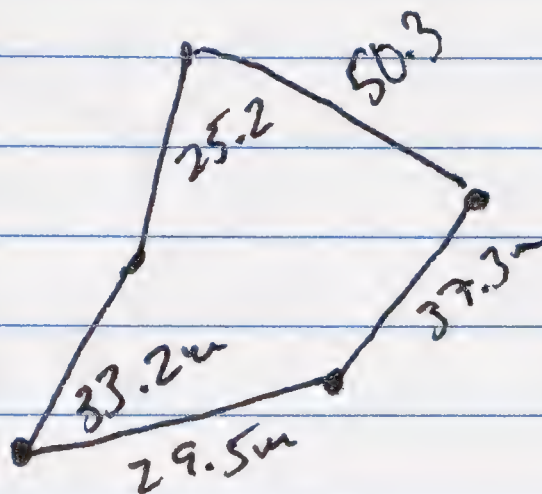 50.3
25.2
37.3m
33.2m
29.5m